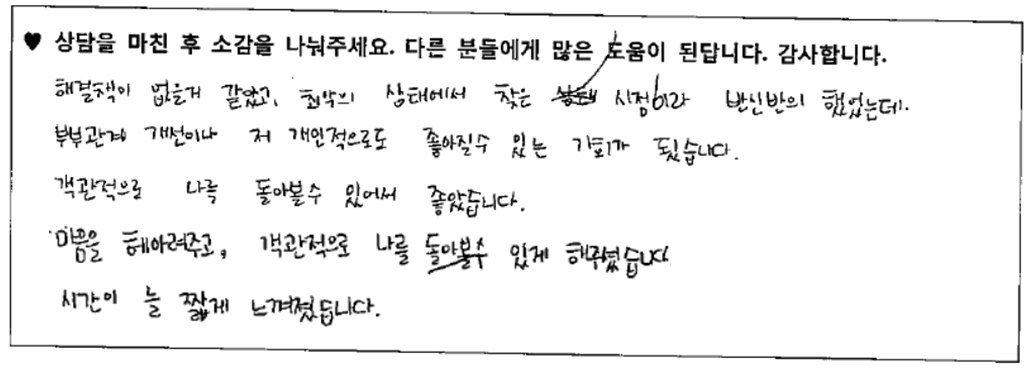 ♥ 상담을 마친 후 소감을 나눠주세요. 다른 분들에게 많은 도움이 된답니다. 감사합니다.
해결책이 없을거 같았고, 최악의 상태에서 찾은 시점이라 반신반의 했었는데.
부부관계 개선이나 저 개인적으로도 좋아질수 있는 기회가 됬습니다.
객관적으로 나를 돌아볼수 있어서 좋았습니다.
마음을 헤아려주고, 객관적으로 나를 돌아볼수 있게 해주셨습니다
시간이 늘 짧게 느껴졌습니다.